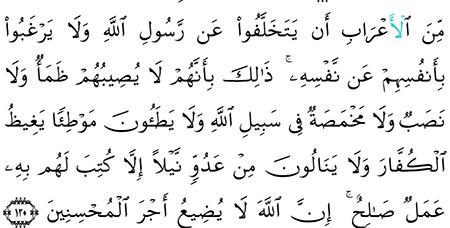 مِّنَ ٱلْأَعْرَابِ أَن يَتَخَلَّفُوا۟ عَن رَّسُولِ ٱللَّهِ وَلَا يَرْغَبُوا۟
بِأَنفُسِهِمْ عَن نَّفْسِهِۦ ۚ ذَٰلِكَ بِأَنَّهُمْ لَا يُصِيبُهُمْ ظَمَأٌ وَلَا
نَصَبٌ وَلَا مَخْمَصَةٌ فِى سَبِيلِ ٱللَّهِ وَلَا يَطَـُٔونَ مَوْطِئًا يَغِيظُ
ٱلْكُفَّارَ وَلَا يَنَالُونَ مِنْ عَدُوٍّ نَّيْلًا إِلَّا كُتِبَ لَهُم بِهِۦ
عَمَلٌ صَـٰلِحٌ ۚ إِنَّ ٱللَّهَ لَا يُضِيعُ أَجْرَ ٱلْمُحْسِنِينَ ١٢٠